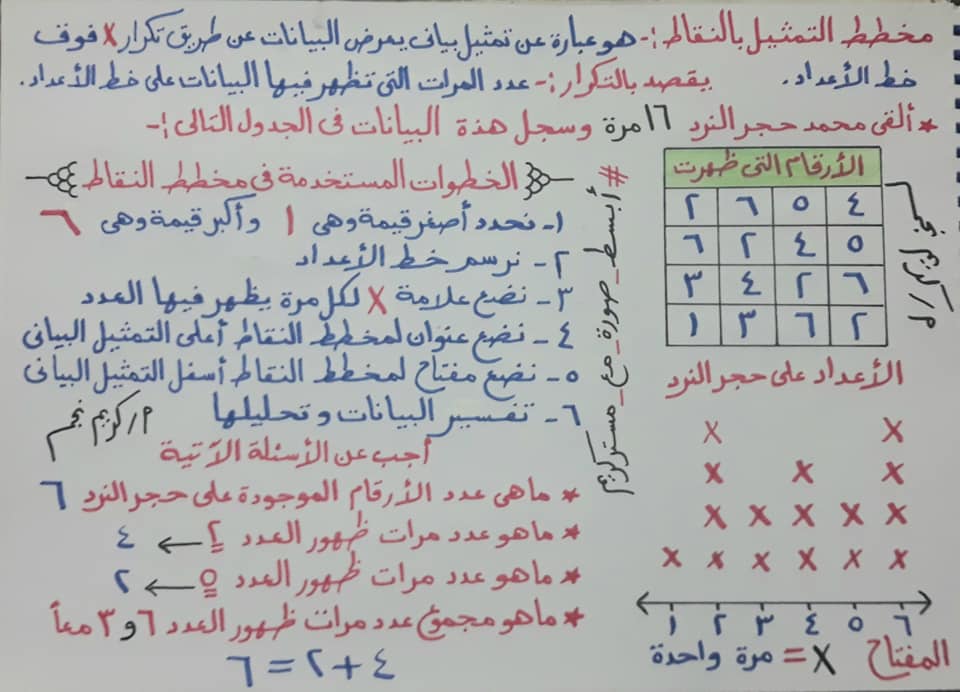 مخطط التمثيل بالنقاط :- هو عبارة عن تمثيل بيانى يعرض البيانات عن طريق تكرار X فوق
خط الأعداد. يقصد بالتكرار :- عدد المرات التى تظهر فيها البيانات على خط الأعداد.
* ألقى محمد حجر النرد ١٦ مرة وسجل هذة البيانات فى الجدول التالى :-
الأرقام التى ظهرت
٤ ٥ ٦ ٢
٥ ٤ ٢ ٦
٦ ٢ ٤ ٣
٢ ٦ ٣ ١
م/كريم نجم
#أبسط_صورة_مع_مستركريم
الخطوات المستخدمة فى مخطط النقاط
١- نحدد أصغر قيمة وهى ١ وأكبر قيمة وهى ٦
٢- نرسم خط الأعداد
٣- نضع علامة X لكل مرة يظهر فيها العدد
٤- نضع عنوان لمخطط النقاط أعلى التمثيل البيانى
٥- نضع مفتاح لمخطط النقاط أسفل التمثيل البيانى
٦- تفسير البيانات وتحليلها
م/كريم نجم
الأعداد على حجر النرد
X X
X X X
X X X X X
X X X X X X
١ ٢ ٣ ٤ ٥ ٦
المفتاح X = مرة واحدة
أجب عن الأسئلة الآتية
* ماهى عدد الأرقام الموجودة على حجر النرد ٦
* ماهو عدد مرات ظهور العدد ٢ ← ٤
* ماهو عدد مرات ظهور العدد ٥ ← ٢
* ماهو مجموع عدد مرات ظهور العدد ٦ و ٣ معاً
٤ + ٢ = ٦